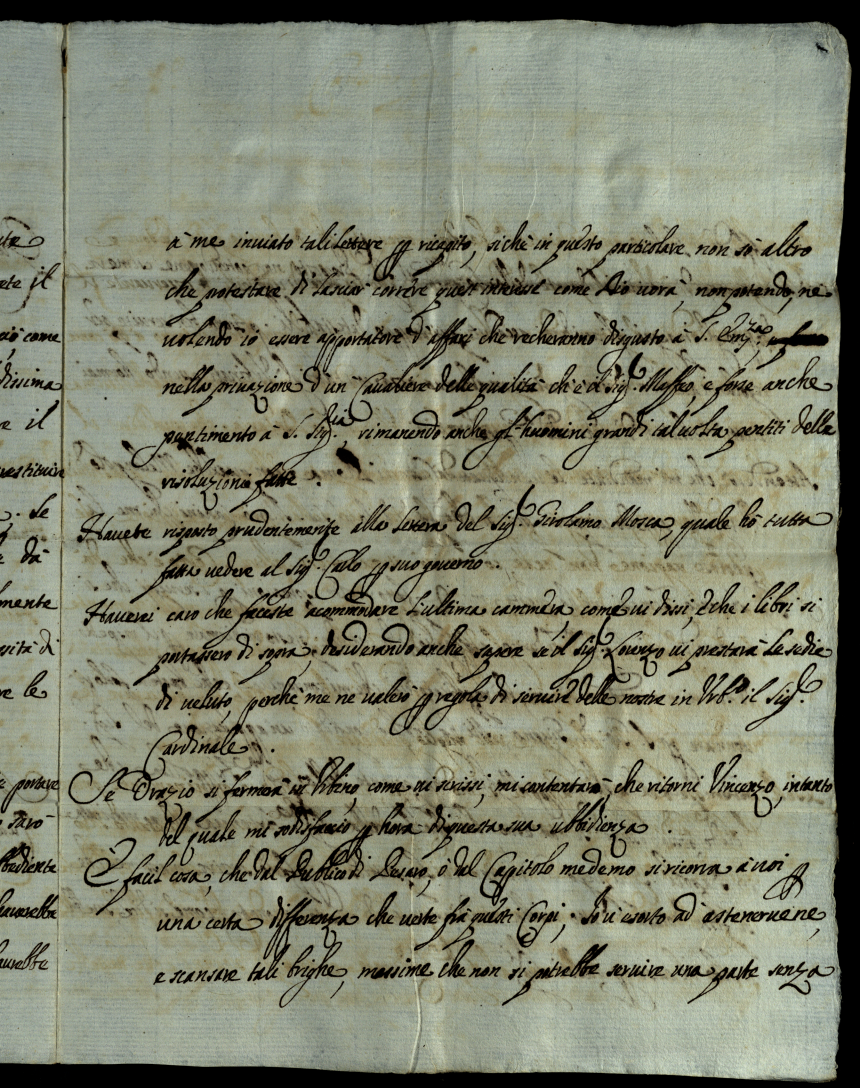 à me inviato tali lettere p ricapito, si chè in questo particolare non sò altro
che protestare di lasciar correre questi interessi come Dio uorà, non potendo, ne
uolendo io essere apportatore d'affari che recheranno disgusto à S. Em.za
nella priuazione d'un Caualiere delle qualità ch'è il Sig.r Maffeo, e forse anche
pentimento à S. Sig.ria, rimanendo anche gl'huomini grandi tal uolta pentiti delle
risoluzioni fatte.
Hauete risposto prudentemente alla lettera del Sig.r Girolamo Mosca, quale hò tutta
fatta uedere al Sig.r Carlo p suo gouerno.
Hauerei caro che faceste accommodare l'ultima cammera, come ui dissi, è che i libri si
portassero di sopra, desiderando anche sapere se il Sig.r Lorenzo ui prestarà le sedie
di ueluto, perchè me ne valerò p regola di seruire delle nostre in Urb.o il Sig.r
Cardinale.
Se Orazio si fermerà in Urbino, come ui scrissi, mi contentarò, che ritorni Vincenzo, intanto
del quale mi sodisfaccio p hora di questa sua ubbidienza.
È facil cosa, che dal Publico di Pesaro, o dal Capitolo medemo si ricorra à uoi p
una certa differenza che uerte frà questi Corpi; Io ui esorto ad astenerue ne,
e scansare tali brighe, massime che non si potrebbe seruire una parte senza
ete il
ciò come
dissima
re il
restituire
. Se
e dà
mente
sità di
re le
e portare
o sarò
bbediente
hauerebbe
aurebbe